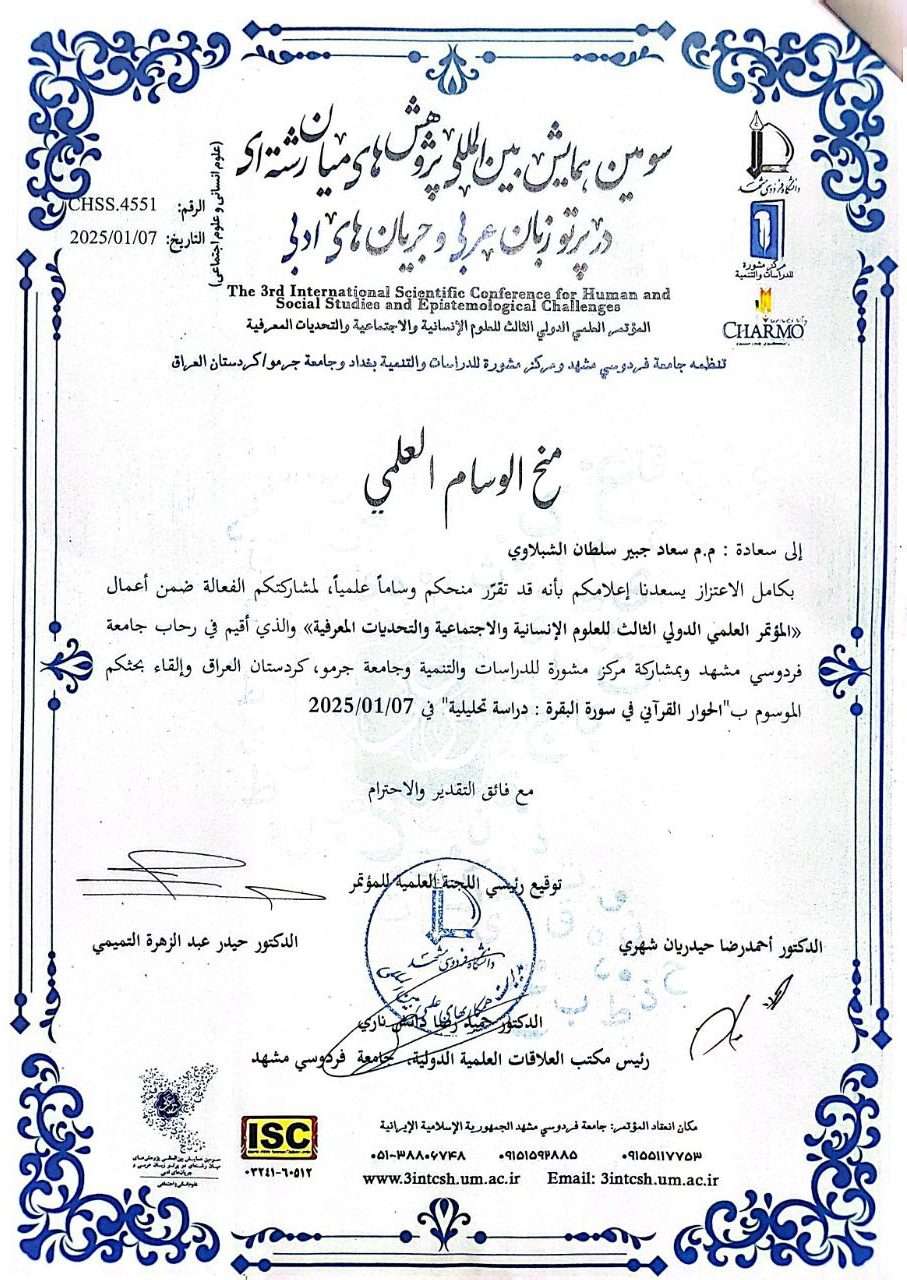 سومین همایش بین‌المللی پژوهش‌های میان‌رشته‌ای
در پرتو زبان عربی و جریان‌های ادبی
(علوم انسانی و علوم اجتماعی)
الرقم: CHSS.4551
التاريخ: 2025/01/07
دانشگاه فردوسی مشهد
مركز مشورة
للدراسات والتنمية
CHARMO
The 3rd International Scientific Conference for Human and
Social Studies and Epistemological Challenges
المؤتمر العلمي الدولي الثالث للعلوم الإنسانية والاجتماعية والتحديات المعرفية
تنظمه جامعة فردوسي مشهد ومركز مشورة للدراسات والتنمية بغداد وجامعة جرمو/كردستان العراق
منح الوسام العلمي
إلى سعادة : م.م سعاد جبير سلطان الشبلاوي
بكامل الاعتزاز يسعدنا إعلامكم بأنه قد تقرّر منحكم وساماً علمياً، لمشاركتكم الفعالة ضمن أعمال
«المؤتمر العلمي الدولي الثالث للعلوم الإنسانية والاجتماعية والتحديات المعرفية» والذي أقيم في رحاب جامعة
فردوسي مشهد وبمشاركة مركز مشورة للدراسات والتنمية وجامعة جرمو، كردستان العراق وإلقاء بحثكم
الموسوم ب"الحوار القرآني في سورة البقرة : دراسة تحليلية" في 2025/01/07
مع فائق التقدير والاحترام
توقيع رئيسي اللجنة العلمية للمؤتمر
الدكتور أحمدرضا حيدريان شهري
الدكتور حيدر عبد الزهرة التميمي
دانشگاه فردوسی مشهد
الدكتور حميد رضا دانش ناري
رئيس مكتب العلاقات العلمية الدولية، جامعة فردوسي مشهد
ISC
۰۳۲۴۱-۶۰۵۱۲
مكان انعقاد المؤتمر: جامعة فردوسي مشهد الجمهورية الإسلامية الإيرانية
۰۹۱۵۵۱۱۷۷۵۳ ۰۹۱۵۱۵۹۲۸۸۵ ۰۵۱-۳۸۸۰۶۷۴۸
www.3intcsh.um.ac.ir Email: 3intcsh.um.ac.ir